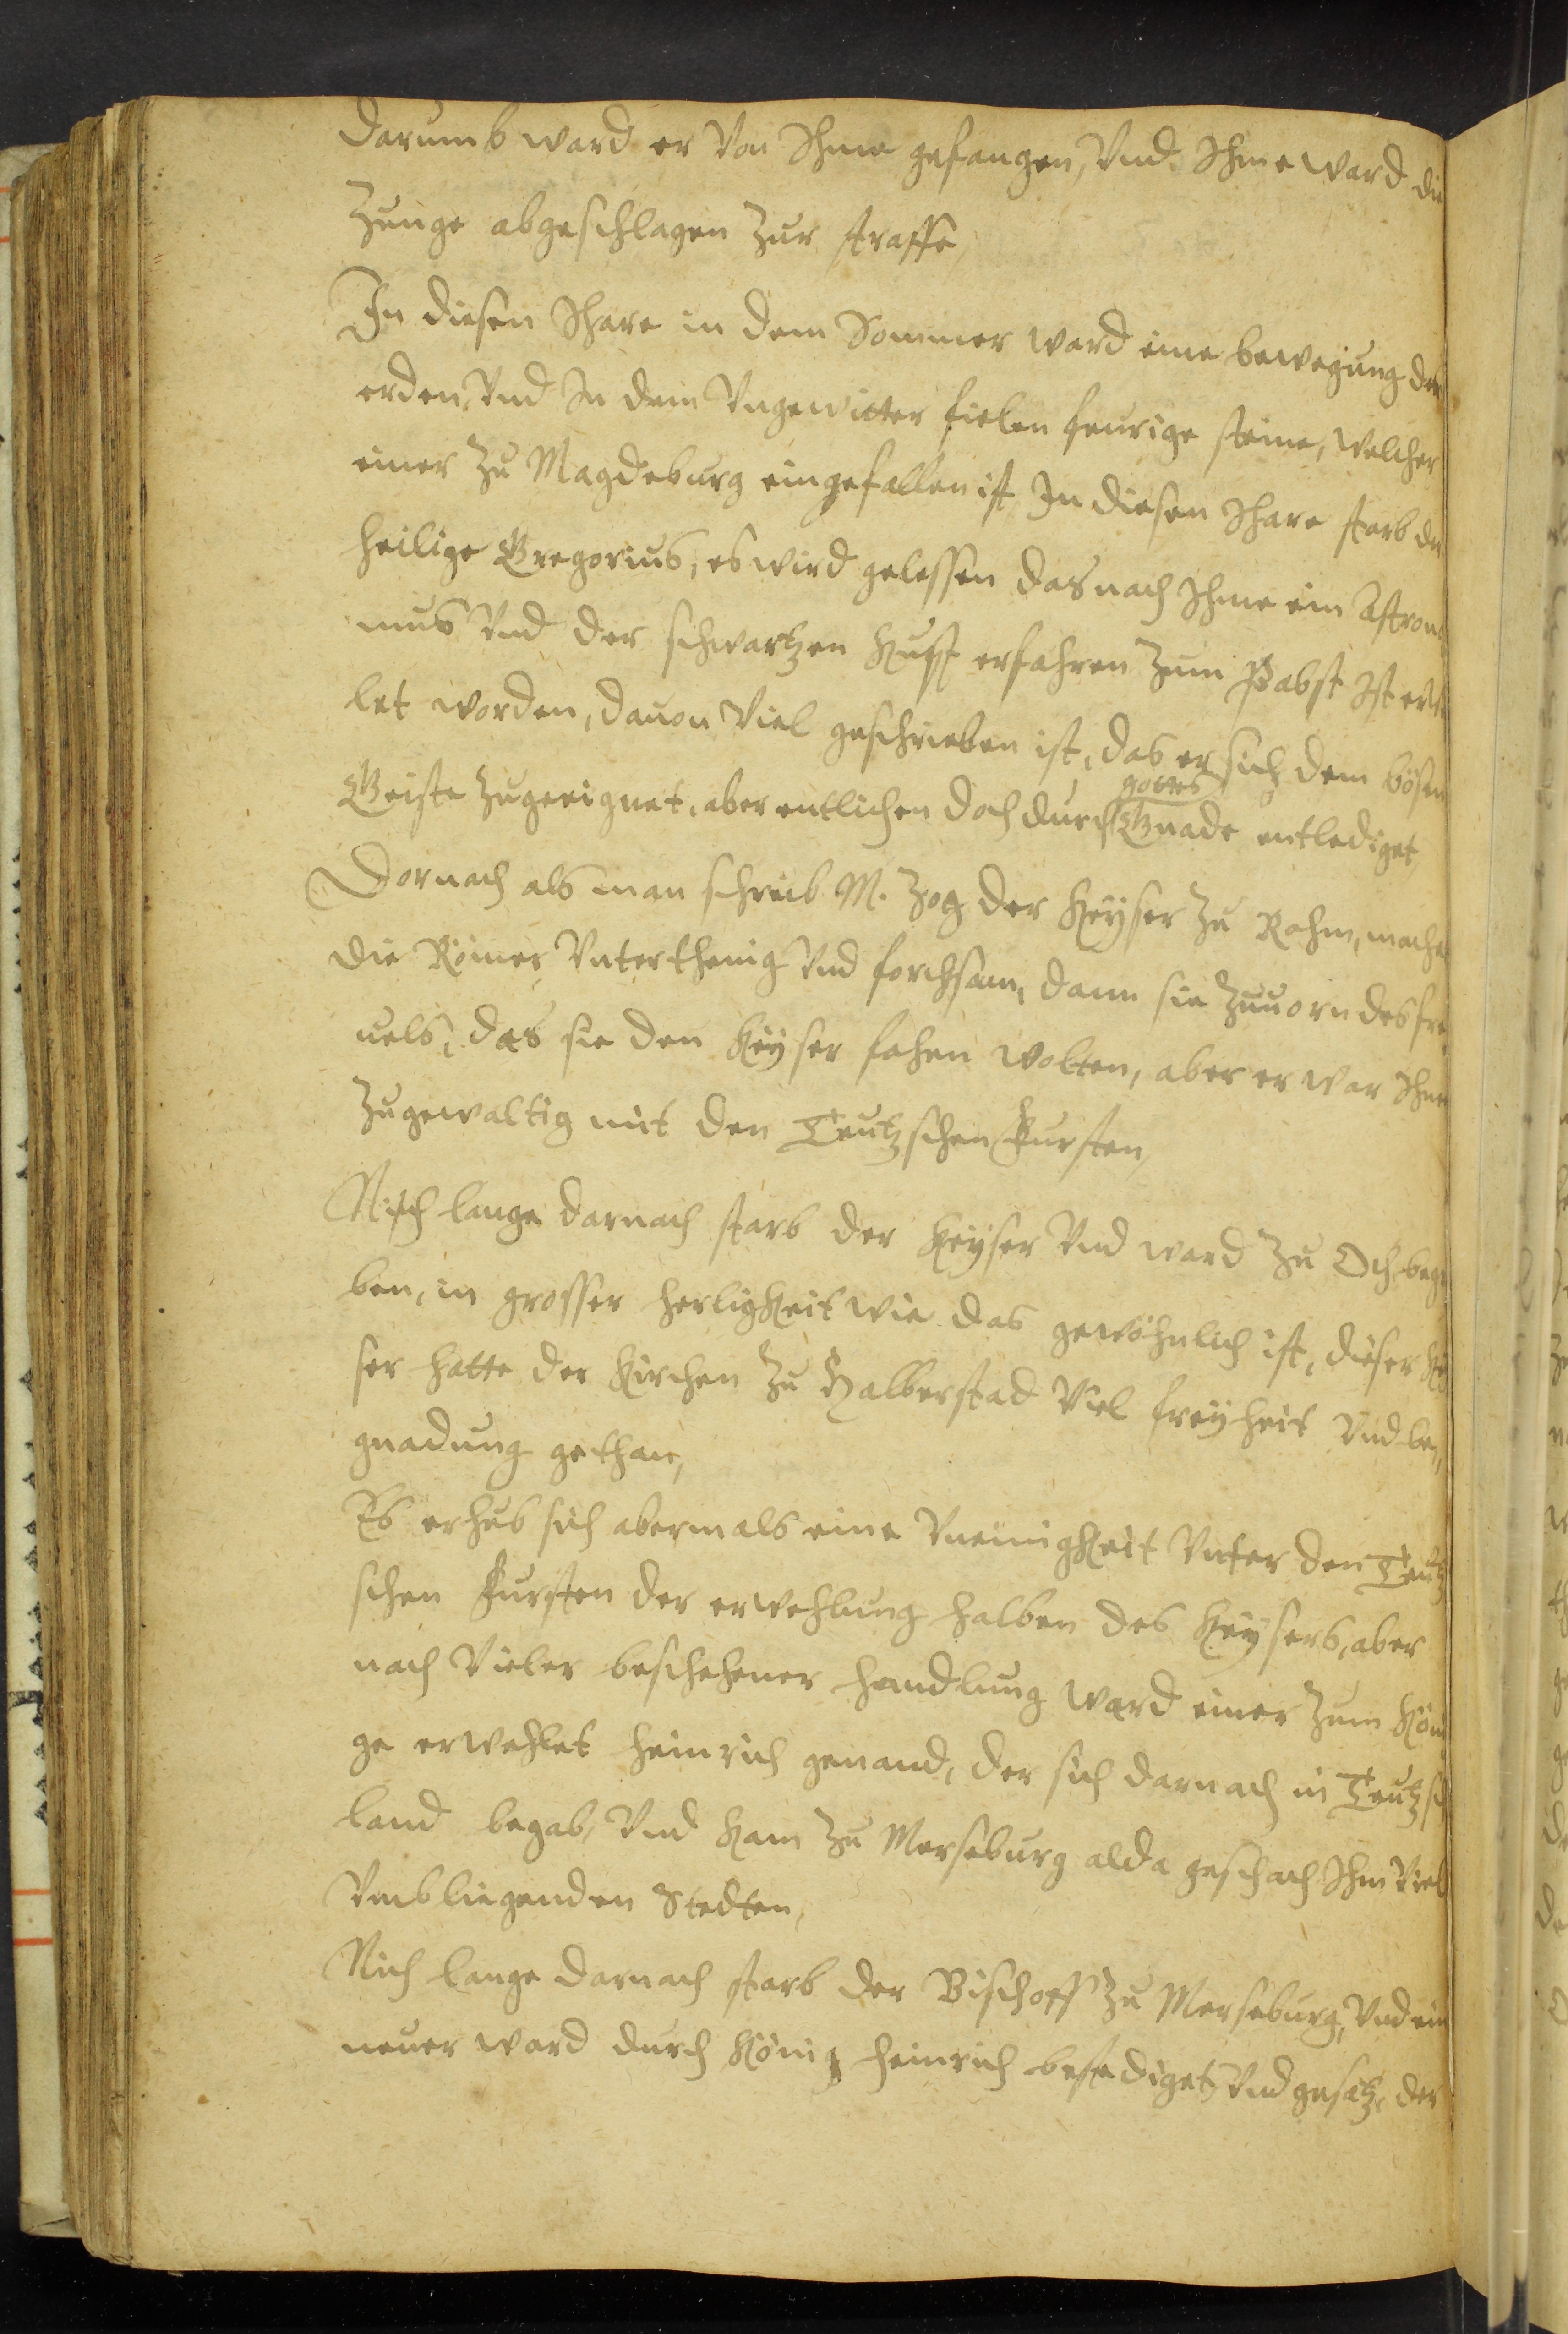 darumb ward er Von Ihme gefangen, Vnd Ihme ward die
Zunge abgeschlagen Zur straffe,
In diesen Ihare in dem Sommer ward eine bewegung der
erden, Vnd In dem Vngewitter fielen feurige steine, welcher
einer Zu Magdeburg eingefallen ist, In diesen Ihare starb der
heilige Gregorius, es wird gelessen das nach Ihme ein Astrono
mus Vnd der schwartzen Kust erfahren Zum Pabst Ist erwe
let worden, dauon Viel geschrieben ist, das er sich dem bösen
gottes
Geiste Zugeeignet, aber entlichen doch durch Gnade entlediget,
Dornach als man schreib M. Zog der Keyser Zu Rohm, mache
die Römer Vnterthenig Vnd forchsam, dann sie Zuuorn des fre
uels, das sie den Keyser fahen wolten, aber er war Ihnen
Zugewaltig mit den Teutzschen Fursten,
Nich lange darnach starb der Keyser Vnd ward Zu Och begra
ben, in grosser herligkeit wie das gewöhnlich ist, dieser Key
ser hatte der Kirchen Zu Halberstad Viel freyheit Vnd be,,
gnadung gethan,
Es erhub sich abermals eine Vneinigkeit Vnter den Teutz
schen Fursten der erwehlung halben des Keysers, aber
nach Vieler beschehener handlung ward einer Zum Köni
ge erwehlet Heinrich genand, der sich darnach in Teutzsch
land begab, Vnd kam Zu Merseburg alda geschach Ihm Viel
Vmbliegenden Stedten,
Nich lange darnach starb der Bischoff Zu Merseburg, Vnd ein
neuer ward durch König Heinrich bestediget Vnd gesetz, der